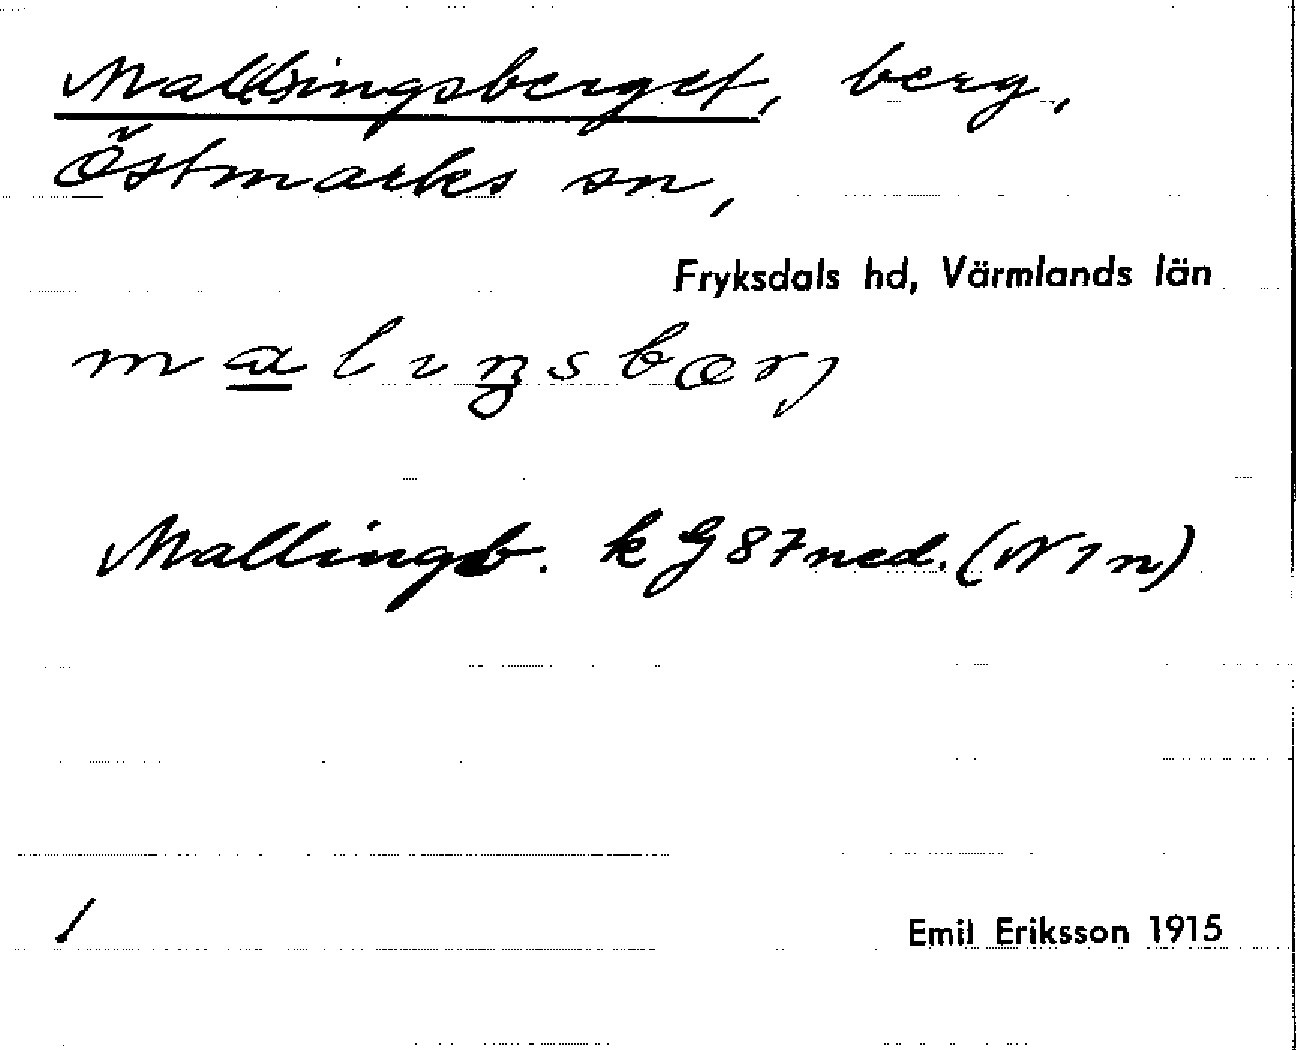 Mal(l)ingsberget, berg,
Östmarks sn,
Fryksdals hd, Värmlands län
malıŋsbærj
Mallingsb. k G 87 ned. (N 1 n)
/
Emil Eriksson 1915